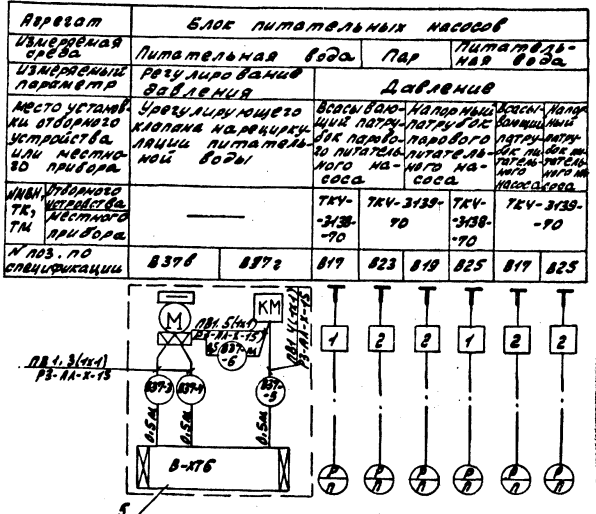 Агрегат
Блок питательных насосов
Измеряемая среда
Питательная вода
Пар
Питатель-
ная вода
Измеряемый параметр
Регулирование
давления
Давление
Место установ-
ки отборного
устройства
или местно-
го прибора
У регулирующего
клапана на рецирку-
ляции питатель-
ной воды
Всасываю-
щий патру-
бок парово-
го питатель-
ного на-
соса
Напорный
патрубок
парового
питатель-
ного на-
соса
Всасы-
вающий
патру-
бок пи-
татель-
ного
насоса
Напор-
ный
патру-
бок питательного насоса
ТК,
ТМ
Отборного
устройства
местного
прибора
ТК4-
-3138-
-70
ТК4-3139-
-70
ТК4-
-3138-
-70
ТК4-3139-
-70
N поз. по
спецификации
В37в
В37г
В17
В23
В19
В25
В17
В25
М
КМ
ПВ1.5(1х1)
РЗ-АЛ-Х-15
ПВ1.4(1х1)
РЗ-АЛ-Х-15
ПВ1.3(1х1)
РЗ-АЛ-Х-15
В37-
-6
В37-3
В37-4
В37-
-5
0,5м
0,5м
0,5м
В-ХТ6
5
1
2
2
1
2
2
Р
П
Р
П
Р
П
Р
П
Р
П
Р
П